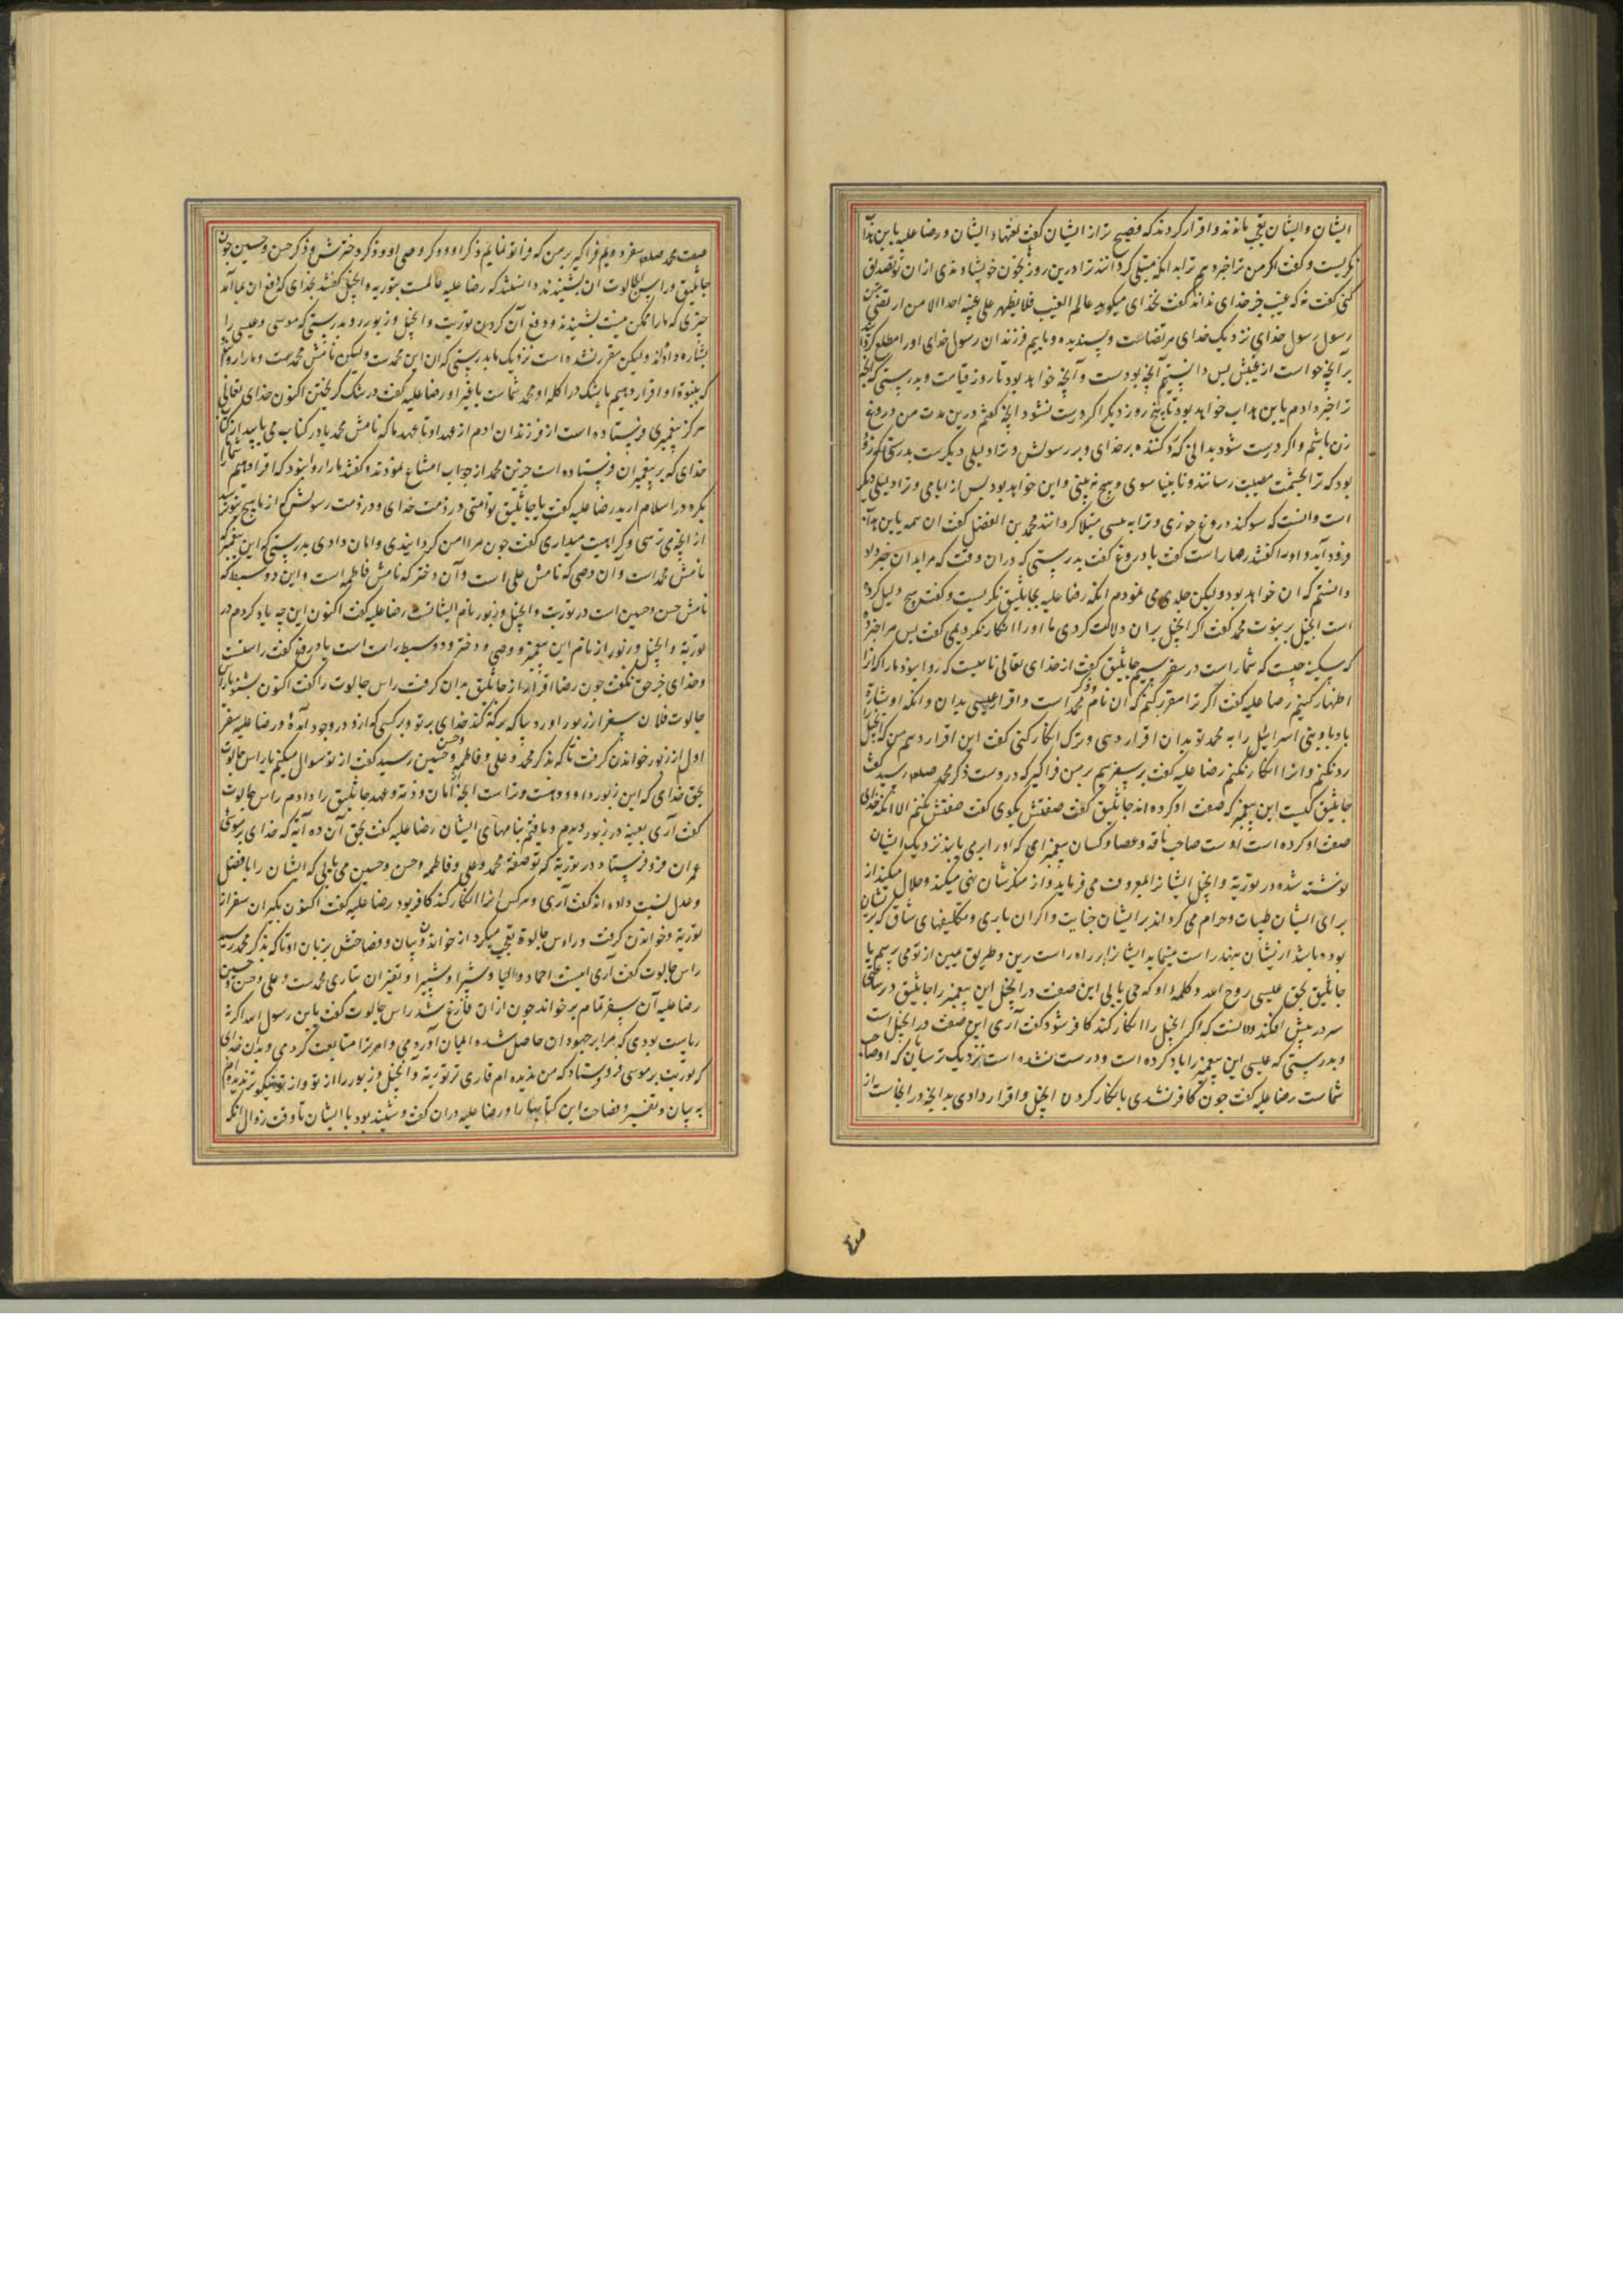 ایشان و ایشان بتعجب بماندند و اقرار کردند که فصیح‌تر از ایشان کفت بلغتها‌ء ایشان و رضا علیه باین هذاب
نکریست و کفت اکر من ترا خبر دهم ترا بدانکه مبتلی کردانند ترا درین روز بخون خویشاوندی از ان تو تصدیق
کنی کفت نه که غیب جز خدای نداند کفت نه خدای میکوید عالم الغیب فلا یظهر علی غیبه احدا الا من ارتضی من
رسول رسول خدای نزدیک خدای مرتضاست و پسندیده و ماییم فرزندان رسول خدای او را مطلع کرد
بر آنچه خواست از غیبش پس دانستیم آنچه بودست و آنچه خواهد بود تا روز قیامت و بدرستی که آنچه
ترا خبر دادم یا بن هداب خواهد بود تا پنج روز دیکر اکر درست نشود آنچه کفتم درین مدت من دروغ
زن باشم و اکر درست شود بدانی که رد کننده بر خدای و بر رسولش و ترا دلیلی دیکرست بدرستی که زود
بود که ترا بچشمت مصیبت رسانند و نابینا شوی و هیچ نه بینی و این خواهد بود پس از ایامی و ترا دلیلی دیکر
است و آنست که سوکند دروغ خوری و ترا به پیسی مبتلا کردانند محمد بن الفضل کفت ان همه یابن هداب
فرود آمد و او را کفتند رضا راست کفت یا دروغ کفت بدرستی که در ان وقت که مرا بدان خبر داد
دانستم که ان خواهد بود ولیکن جلدی می نمودم آنکه رضا علیه بجاثلیق نکریست و کفت هیچ دلیل کرده
است انجیل بر نبوت محمد کفت اکر انجیل بران دلالت کردی ما او را انکار نکردیمی کفت پس مرا خبر ده
که سکینه چیست که شما راست در سفر سیم جاثلیق کفت از خدای تعالی نامیست که روا نبود ما را که آنرا
اظهار کنیم رضا علیه کفت اکر ترا مقرر کنم که ان نام و ذکر محمد است و اقرار عیسی بدان و آنکه او بشارة
یاد بنی اسرایل را به محمد تو بدان اقرار دهی و ترک انکار کنی کفت این اقرار دهم من که انجیل را
رد نکنم و انرا انکار نکنم رضا علیه کفت بر سفر سیم بر من فرا کیر که دروست ذکر محمد صلعم رسید کفت
جاثلیق کیست این پیغمبر که صفت او کرده اند جاثلیق کفت صفتش بکوی کفت صفتش نکنم الا آنکه خدای
صفت او کرده است اوست صاحب ناقه و عصا و کسا آن پیغمبر امی که او را می یابند نزدیک ایشان
نوشته شده در توریة و انجیل ایشانرا بمعروف می فرماید و از منکرشان نهی میکند و حلال میکند از
برای ایشان طیبات و حرام می کرداند بر ایشان خبایث و اکران باری و تکلیفهای شاق که بریشان
بوده باشد از یشان بنهد راست مینماید ایشانرا بر راه راست رین و طریق مبین از تو می پرسم یا
جاثلیق بحق عیسی روح الله و کلمه او که می یابی این صفت در انجیل این پیغمبر را جاثلیق در ساعتی
سر در پیش افکند و دانست که اکر انجیل را انکار کند کافر شود کفت آری این صفت در انجیل است
و بدرستی که عیسی این پیغمبر را یاد کرده است و درست نشده است نزدیک ترسایان که او صاحب
شماست رضا علیه کفت چون کافر نشدی بانکار کردن انجیل و اقرار دادی بدانچه در انجاست از
صفت محمد صلعم سفر دویم فرا کیر بر من که فرا تو نمایم ذکر او و ذکر وصی او و ذکر دخترش و ذکر حسن و حسین چون
جاثلیق و راس الجالوت ان بشنیدند دانستند که رضا علیه عالمست بتوریه و انجیل کفتند بخدای که دفع ان بما آمد
چیزی که ما را ممکن نیست بشنیدند و دفع آن کردن توریت و انجیل و زبور رد و بدرستی که موسی و عیسی را
بشاره داده‌اند ولیکن مقرر نشده است نزدیک ما بدرستی که ان این محمدست ولیکن نامش محمدست و ما را روا
که بنبوة او اقرار دهیم باشک درانکه او محمد شماست یا غیر او رضا علیه کفت در شک کریختن اکنون خدای تعالی
هرکز پیغمبری فرستاده است از فرزندان ادم از عهد او تا عهد ما که نامش محمد یا در کتاب می یابید از کتابها
خدای که بر پیغمبران فرستاده است جزین محمد از جواب امتناع نمودند و کفتند ما را روا نبود که اقرار دهیم شما را
بکره در اسلام ارید رضا علیه کفت یا جاثلیق تو آمنی در ذمت خدای و در ذمت رسولش که از ما هیچ بتو نرسد
از انچه می ترسی و کراهیت میداری کفت چون مرا امن کردانیدی و امان دادی بدرستی که این پیغمبر که
نامش محمد است و آن وصی که نامش علی است و آن دختر که نامش فاطمه است و این دو سبط که
نامش حسن و حسین است در توریت و انجیل و زبور نام ایشانست رضا علیه کفت اکنون این چه یاد کردم در
توریة و انجیل و زبور از نام این پیغمبر و وصی و دختر و دو سبط راست است یا دروغ کفت راستست
و خدای جز حق نکفت چون رضا اقرار از جاثلیق بدان کرفت راس جالوت را کفت اکنون بشنو یا راس
جالوت فلان سفر از زبور او رد بیا که برکة کند خدای بر تو و بر کسی که از و در وجود آمدۀ و رضا علیه سفر
اول از زبور خواندن کرفت تا که بذکر محمد و علی و فاطمه و حسن و حسین رسید کفت از تو سوال میکنم یا راس جالوت
بحق خدای که این زبور داوود هست و تراست انچه امان و ذمة و عهد جاثلیق را دادم راس جالوت
کفت آری بعینه در زبور دیدم و یافتم بنامهای ایشان رضا علیه کفت بحق آن ده آیة که خدای بموسی
عمران فرو فرستاد در توریة که تو صفة محمد و علی و فاطمه و حسن و حسین می یابی که ایشان را با فضل
و عدل نسبت داده اند کفت آری و هر کس انرا انکار کند کافر بود رضا علیه کفت اکنون بکیر ان سفر از
توریة و خواندن کرفت و راس جالوة تعجب میکرد از خواندن و بیان و فصاحتش بزبان او تا که بذکر محمد رسید
راس جالوت کفت آری اینست احماد و الیا و شبرا و شبیرا و تفسیر ان بتازی محمدست و علی و حسن و حسین
رضا علیه آن سفر تمام بر خواند چون از ان فارغ شد راس جالوت کفت یابن رسول الله اکر نه
ریاست بودی که مرا بر جهودان حاصل شده ایمان آوردمی و امر ترا متابعت کردمی و بدان خدای
که توریت بر موسی فرو فرستاد که من ندیده ام قاری تر توریة و انجیل و زبور را از تو و از تو نیکوتر ندیده ام
به بیان و تفسیر و فصاحت این کتابها را و رضا علیه دران کفت و شنید بود با ایشان تا وقت زوال آنکه